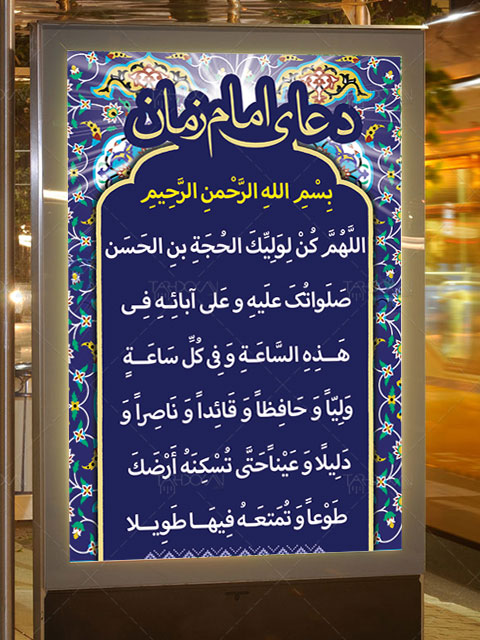 دعای امام زمان
بِسْمِ اللهِ الرَّحْمنِ الرَّحِیمِ
اللَّهُمَّ كُنْ لِوَلِيِّكَ الحُجَةِ بنِ الحَسَن
صَلَواتُکَ علَیهِ و عَلی آبائِهِ فِی
هَذِهِ السَّاعَةِ وَ فِی كُلِّ سَاعَةٍ
وَلِیّاً وَ حَافِظاً وَ قَائِداً وَ نَاصِراً وَ
دَلِیلًا وَ عَیْناً حَتَّى تُسْكِنَهُ أَرْضَكَ
طَوْعاً وَ تُمَتعَهُ فِیهَا طَوِیلا